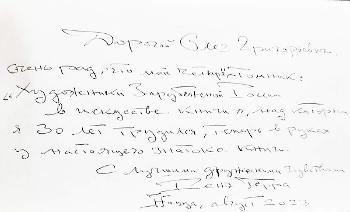 Дорогой Олег Григорьевич.
Очень рад, что мой четырёхтомник:
„Художники Зарубежной России
в искусстве книги", над которым
я 30 лет трудился, теперь в руках
у настоящего знатока книги.
С лучшими дружескими чувствами
Рене Герра
Ницца, август 2023